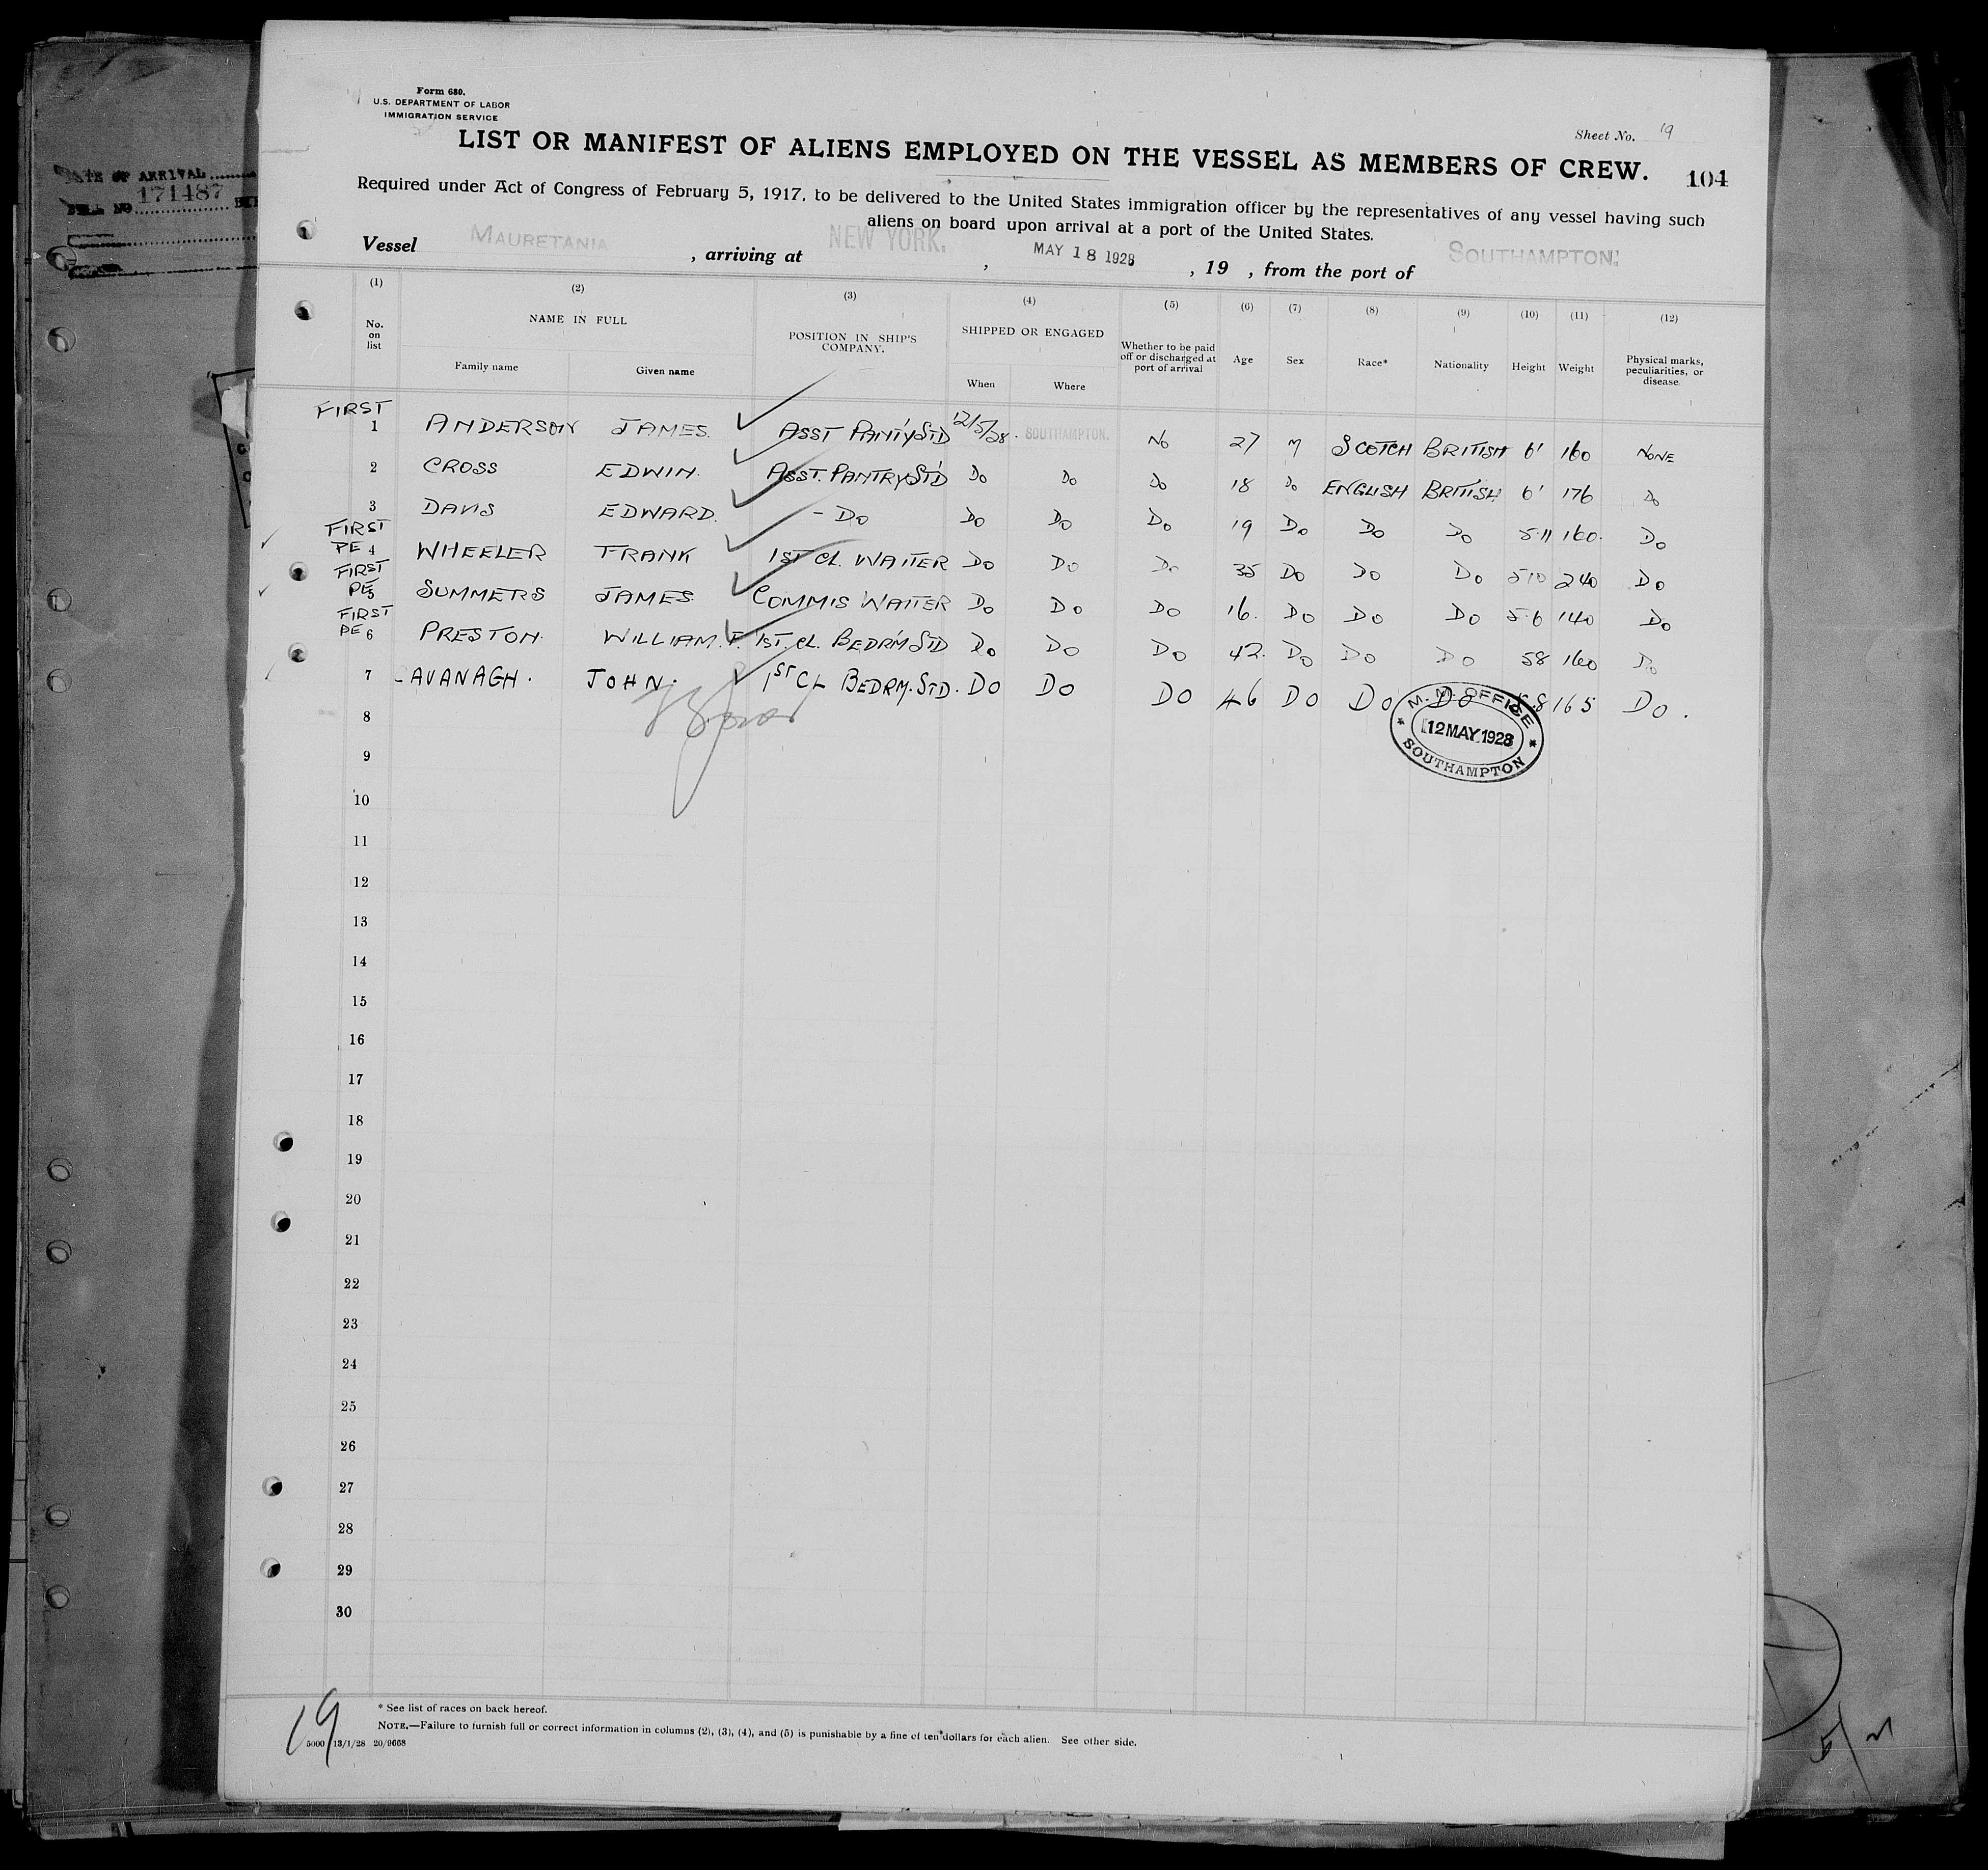 Form 680.
U.S. DEPARTMENT OF LABOR
IMMIGRATION SERVICE
Sheet No. 19
LIST OR MANIFEST OF ALIENS EMPLOYED ON THE VESSEL AS MEMBERS OF CREW. 104
Required under Act of Congress of February 5, 1917, to be delivered to the United States immigration officer by the representatives of any vessel having such
aliens on board upon arrival at a port of the United States.
Vessel MAURETANIA , arriving at NEW YORK. , MAY 18 1928 , 19 , from the port of SOUTHAMPTON.
DATE OF ARRIVAL
171487
(1) (2) (3) (4) (5) (6) (7) (8) (9) (10) (11) (12)
No. on list NAME IN FULL Family name Given name POSITION IN SHIP'S COMPANY. SHIPPED OR ENGAGED When Where Whether to be paid off or discharged at port of arrival Age Sex Race* Nationality Height Weight Physical marks, peculiarities, or disease.
FIRST 1 ANDERSON JAMES. ASST PANT'Y STD 12/5/28. SOUTHAMPTON. NO 27 M SCOTCH BRITISH 6' 160 NONE
2 CROSS EDWIN. ASST. PANTRY ST'D DO DO DO 18 DO ENGLISH BRITISH 6' 176 DO
3 DAVIS EDWARD. - DO DO DO DO 19 DO DO DO 5.11 160. DO
FIRST PE 4 WHEELER FRANK 1ST CL. WAITER DO DO DO 35 DO DO DO 510 240 DO
FIRST PE 5 SUMMERS JAMES. COMMIS WAITER DO DO DO 16. DO DO DO 5.6 140 DO
FIRST PE 6 PRESTON. WILLIAM. F. 1ST. CL. BEDR'M STD DO DO DO 42. DO DO DO 58 160 DO
7 CAVANAGH. JOHN. 1ST CL BEDRM. STD. DO DO DO 46 DO DO DO 5.8 165 DO.
8
M. M. OFFICE
12 MAY 1928
SOUTHAMPTON
9
10
11
12
13
14
15
16
17
18
19
20
21
22
23
24
25
26
27
28
29
30
* See list of races on back hereof.
NOTE.—Failure to furnish full or correct information in columns (2), (3), (4), and (5) is punishable by a fine of ten dollars for each alien. See other side.
19
5000 13/1/28 20/9668